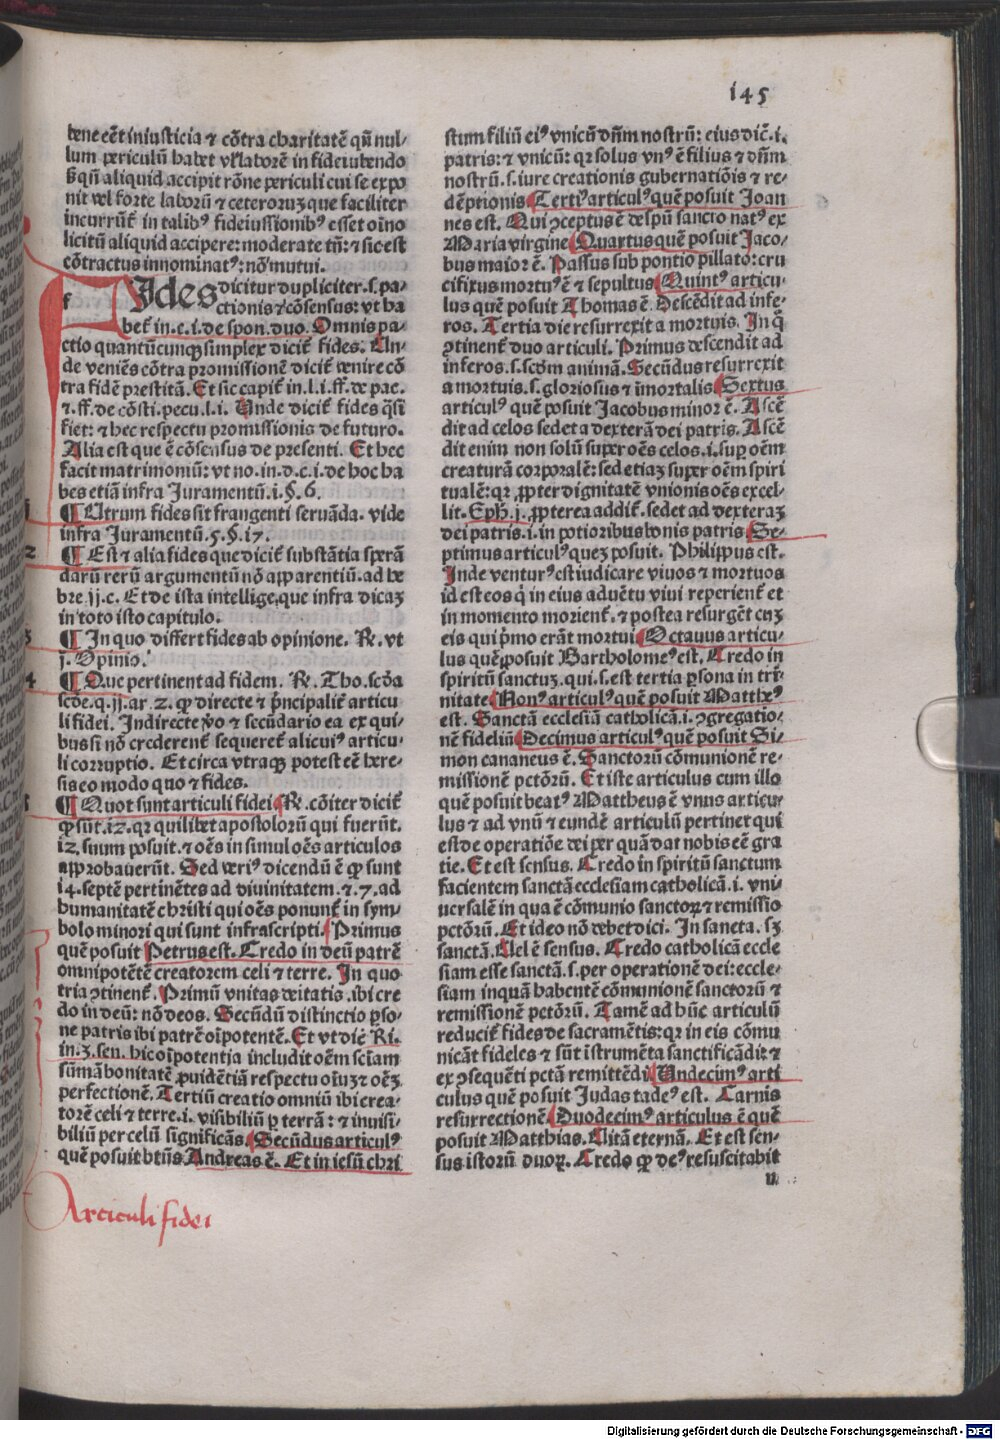 145
bene eēt iniusticia ⁊ cōtra charitatē qñ nul-
lum periculū habet vl̕ laborē in fideiubendo
s̄ qñ aliquid accipit rōne periculi cui se expo
nit vel forte laborū ⁊ ceterorumꝫ que faciliter
incurrūt̕ in talibꝰ fideiussionibꝰ esset oīno
licitū aliquid accipere: moderate tñ: ⁊ sic est
cōtractus innominatꝰ: nō mutui.
f
FIdes dicitur dupliciter .s. pa-
ctionis ⁊ cōsensus: vt ha
bet̕ in .c. i. de spon. duo. Omnis pa-
ctio quantūcunqꝫ simplex dicit̕ fides. Un-
de veniēs cōtra promissionē dicit̕ venire cō
tra fidē prestitā. Et sic capit̕ in .l. i. ff. de pac.
⁊ .ff. de cōsti. pecu. l. i. Unde dicit̕ fides q̄si
fiet: ⁊ hec respectu promissionis de futuro.
Alia est que ē cōsensus de presenti. Et hec
facit matrimoniū: vt no. in .d. c. i. de hoc ha
bes etiā infra Juramentū .i. §. 6.
¶ Utrum fides sit frangenti seruāda. vide
infra Juramentū .5. §. 17.
2
¶ Est ⁊ alia fides que dicit̕ substātia sperā
darū rerū argumentū nō apparentiū. ad he
bre. ij. c. Et de ista intellige, que infra dicaꝫ
in toto isto capitulo.
3
¶ In quo differt fides ab opinione. R̄. vt
j. Opinio.
4
¶ Que pertinent ad fidem. R̄. Tho. scďa
scďe. q. ij. ar. 2. ꝙ directe ⁊ p̄ncipalit̕ articu
li fidei. Indirecte v̄o ⁊ secūdario ea ex qui-
bus si nō crederent̕ sequeret̕ alicuiꝰ articu-
li corruptio. Et circa vtraqꝫ potest eē here-
sis eo modo quo ⁊ fides.
¶ Quot sunt articuli fidei R̄. cōiter dicit̕
ꝙ sūt .12. qꝛ quilibet apostolorū qui fuerūt.
12. suum posuit. ⁊ oēs in simul oēs articulos
approbauerūt. Sed veriꝰ dicendū ē ꝙ sunt
14. septē pertinētes ad diuinitatem. ⁊ .7. ad
humanitatē christi qui oēs ponunt̕ in sym-
bolo minori qui sunt infrascripti. Primus
quē posuit Petrus est. Credo in deū patrē
omnipotētē creatorem celi ⁊ terre. In quo
tria ɔtinent̕. Primū vnitas deitatis. ibi cre
do in deū: nō deos. Secūdū distinctio ꝑso-
ne patris ibi patrē oīpotentē. Et vt diē Ri.
in .3. sen. hic oīpotentia includit oēm sciam
sūmā bonitatē ꝓuidētiā respectu oīuꝫ ⁊ oēꝫ
perfectionē. Tertiū creatio omniū ibi crea-
torē celi ⁊ terre .i. visibiliū ꝑ terrā: ⁊ inuisi-
biliū per celū significās. Secūdus articulꝰ
quē posuit btūs Andreas ē. Et in iesū chri
Articuli fidei
stum filiū eiꝰ vnicū dñm nostrū: eius dic̄ .i.
patris: ⁊ vnicū: qꝛ solus vnꝰ ē filius ⁊ dñm
nostrū .s. iure creationis gubernatiōis ⁊ re-
dēptionis Tertiꝰ articulꝰ quē posuit Joan
nes est. Qui ɔceptus ē de spū sancto natꝰ ex
Maria virgine Quartus quē posuit Jaco-
bus maior ē. Passus sub pontio pillato: cru
cifixus mortuꝰ ē ⁊ sepultus Quintꝰ articu-
lus quē posuit Thomas ē. Descēdit ad infe-
ros. Tertia die resurrexit a mortuis. In q̊
ɔtinent̕ duo articuli. Primus descendit ad
inferos .s. scďm animā. Secūdus resurrexit
a mortuis .s. gloriosus ⁊ īmortalis Sextus
articulꝰ quē posuit Jacobus minor ē. Ascē
dit ad celos sedet a dexterā dei patris. Ascē
dit enim non solū super oēs celos .i. suꝑ oēm
creaturā corporalē: sed etiaꝫ super oēm spiri
tualē: qꝛ ꝓpter dignitatē vnionis oēs excel-
lit. Eph̕. j. ꝓpterea addit̕. sedet ad dexteraꝫ
dei patris .i. in potioribus bonis patris Se-
ptimus articulꝰ queꝫ posuit. Philippus est.
Inde venturꝰ est iudicare viuos ⁊ mortuos
id est eos q̄ in eius aduētu viui reperient̕ et
in momento morient̕. ⁊ postea resurgēt cuꝫ
eis qui p̄mo erāt mortui Octauus articu-
lus quē posuit Bartholomeꝰ est. Credo in
spiritū sanctuꝫ. qui .s. est tertia ꝑsona in tri-
nitate Nonꝰ articulꝰ quē posuit Mattheꝰ
est. Sanctā ecclesiā catholicā .i. ɔgregatio-
nē fideliū Decimus articulꝰ quē posuit Si-
mon cananeus ē. Sanctorū cōmunionē re-
missionē pctōrū. Et iste articulus cum illo
quē posuit beatꝰ Mattheus ē vnus articu-
lus ⁊ ad vnū ⁊ eundē articulū pertinet qui
est de operatiōe dei per quā dat nobis eē gra
tie. Et est sensus. Credo in spiritū sanctum
facientem sanctā ecclesiam catholicā .i. vni-
uersalē in qua ē cōmunio sanctoꝝ ⁊ remissio
pctōrū. Et ideo nō debet dici. In sancta. sꝫ
sanctā. Uel ē sensus. Credo catholicā eccle
siam esse sanctā .s. per operationē dei: eccle-
siam inquā habentē cōmunionē sanctorū ⁊
remissionē pctōrū. Tamē ad hūc articulū
reducit̕ fides de sacramētis: qꝛ in eis cōmu
nicāt fideles ⁊ sūt īstrumēta sanctificādi: ⁊
ex ɔsequēti pctā remittēdi Undecimꝰ arti
culus quē posuit Judas tadeꝰ est. Carnis
resurrectionē Duodecimꝰ articulus ē quē
posuit Matthias. Uitā eternā. Et est sen-
sus istorū duoꝝ. Credo ꝙ deꝰ resuscitabit
u
Digitalisierung gefördert durch die Deutsche Forschungsgemeinschaft - DFG